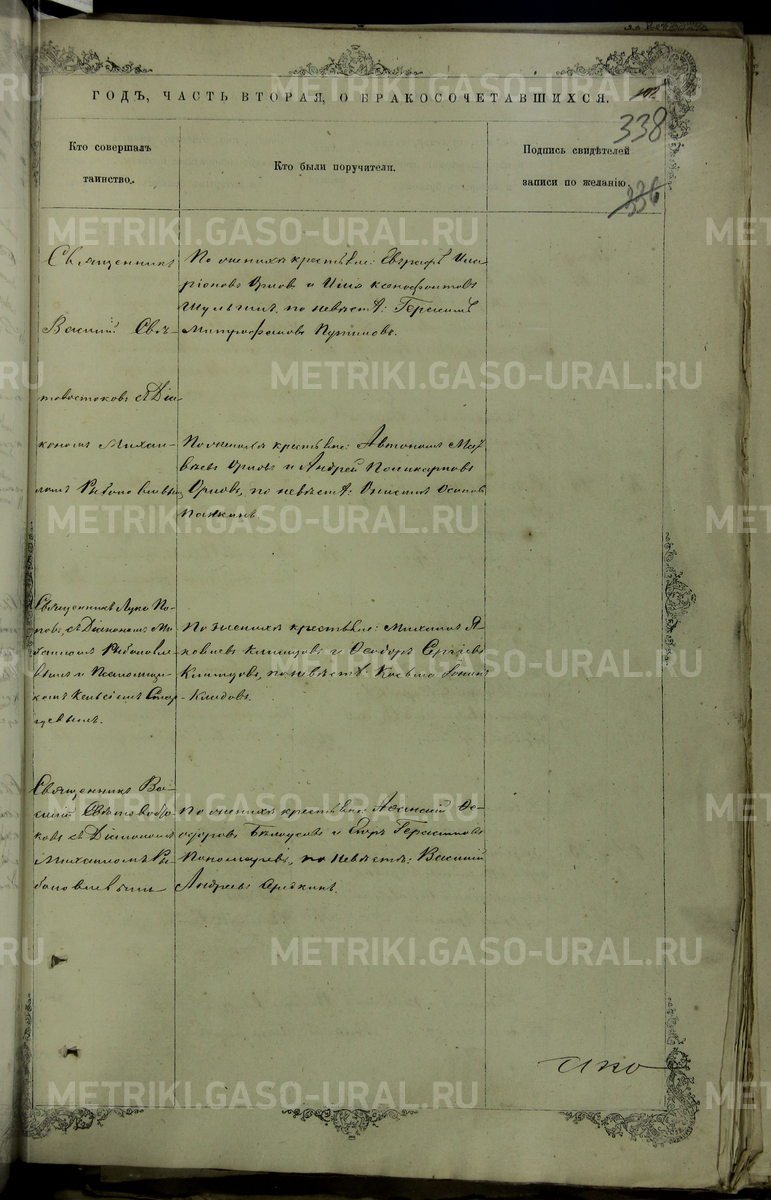 ГОДЪ, ЧАСТЬ ВТОРАЯ, О БРАКОСОЧЕТАВШИХСЯ.
338
336
Кто совершалъ
таинство.
Кто были поручители.
Подпись свидѣтелей
записи по желанію.
Священникъ
Василій Свѣ-
товостоковъ съ Діа-
кономъ Михаи-
ломъ
По женихѣ крестьяне: Евграфъ Ила-
ріоновъ Орловъ и Илія Ксенофонтовъ
Шульгинъ, по невѣстѣ: Герасимъ
Митрофановъ
По женихѣ крестьяне: Автономъ Мат-
вѣевъ Орловъ и Андрей Поликарповъ
Орловъ, по невѣстѣ: Онисимъ Осиповъ
Панкинъ.
Священникъ Лука По-
повъ, съ Діакономъ Ми-
хаиломъ
и Псаломщи-
комъ
По женихѣ крестьяне: Михаилъ Я-
ковлевъ и Ѳеодоръ Сергѣевъ
по невѣстѣ: Косьма
Священникъ Ва-
силій
съ Діакономъ
Михаиломъ Ры-
По женихѣ крестьяне: Аѳанасій Ѳе-
одоровъ Бѣлоусовъ и Егоръ Герасимовъ
Пономаревъ, по невѣстѣ: Василій
Андреевъ Середкинъ.
METRIKI.GASO-URAL.RU